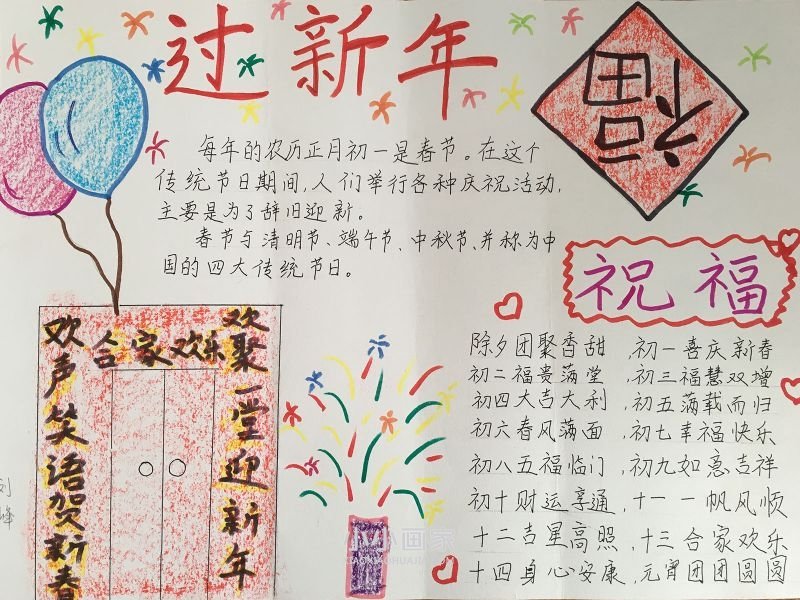 过新年
福
每年的农历正月初一是春节。在这个
传统节日期间,人们举行各种庆祝活动,
主要是为了辞旧迎新。
春节与清明节、端午节、中秋节、并称为中
国的四大传统节日。
祝福
合家欢乐
欢声笑语贺新春
欢聚一堂迎新年
除夕团聚香甜,初一喜庆新春
初二福贵满堂,初三福慧双增
初四大吉大利,初五满载而归
初六春风满面,初七幸福快乐
初八五福临门,初九如意吉祥
初十财运享通,十一一帆风顺
十二吉星高照,十三合家欢乐
十四身心安康,元宵团团圆圆
小小画家